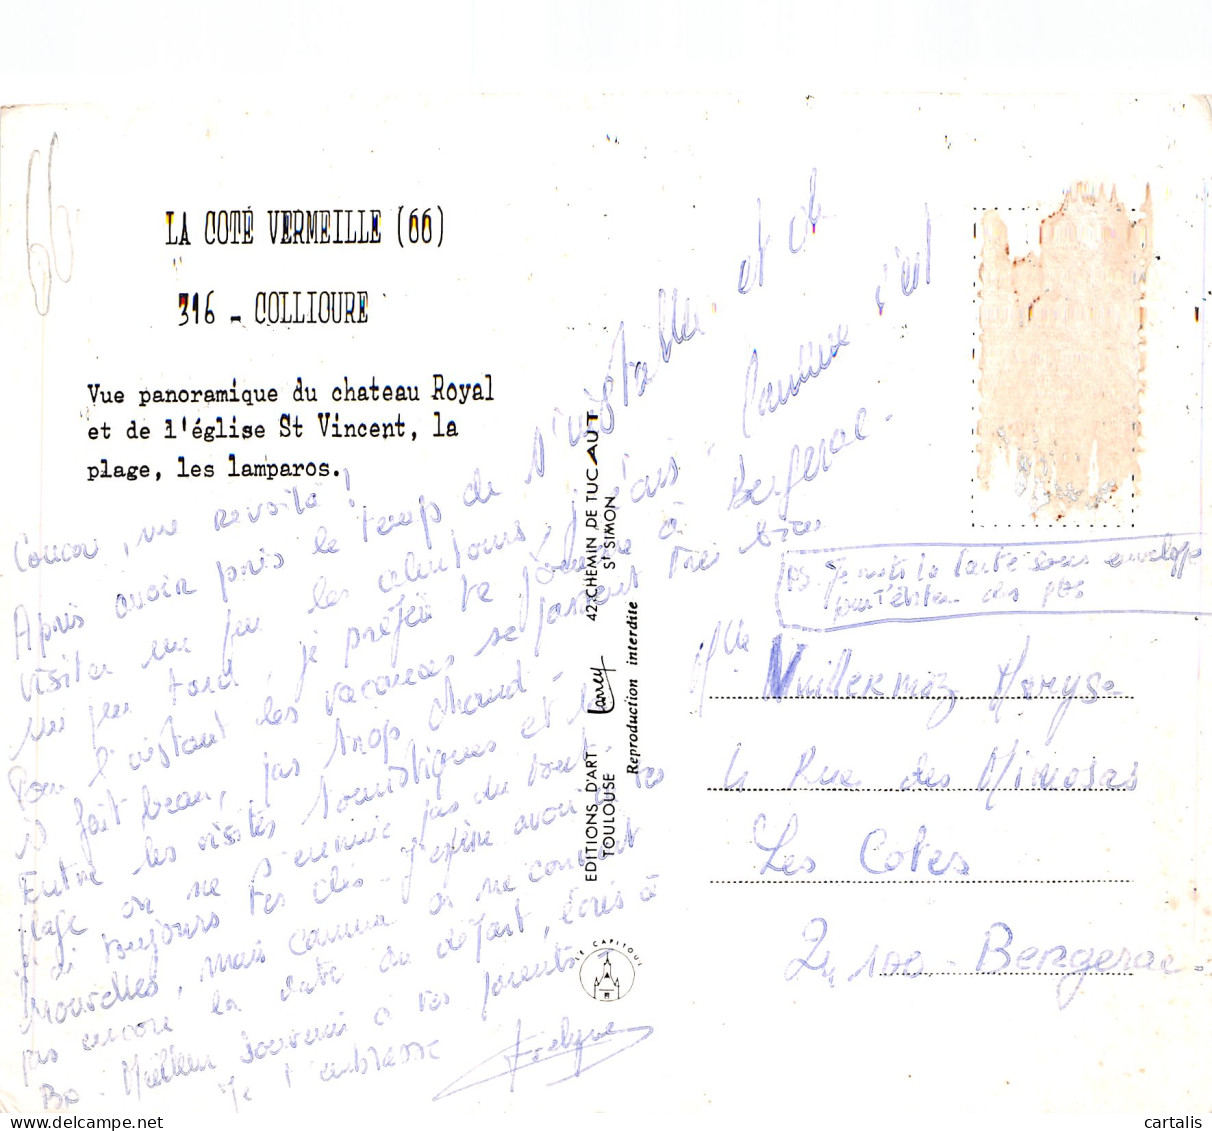 66
LA COTÉ VERMEILLE (66)
316 - COLLIOURE
Vue panoramique du chateau Royal
et de l'église St Vincent, la
plage, les lamparos.
Coucou, me revoilà !
Après avoir pris le temps de s'installer et de
visiter un peu les alentours, j'écris comme c'est
un peu tard, je préfère te joindre à Bergerac -
Pour l'instant les vacances se passent très bien
il fait beau, pas trop chaud -
Entre les visites touristiques et la
plage on ne s'ennuie pas du tout.
J'ai toujours tes clés - J'espère avoir de tes
nouvelles, mais comme on ne connait
pas encore la date du départ, écris à
Bp - Meilleur souvenir à tes parents -
Je t'embrasse Evelyne
EDITIONS D'ART Larrey 42, CHEMIN DE TUCAUT
TOULOUSE St SIMON
Reproduction interdite
LE CAPITOUL
PS. Je mets la carte sous enveloppe
pour t'éviter des pbs
Mlle Vuillermoz Maryse
4 Rue des Mimosas
Les Cotes
24 100 - Bergerac -
cartalis